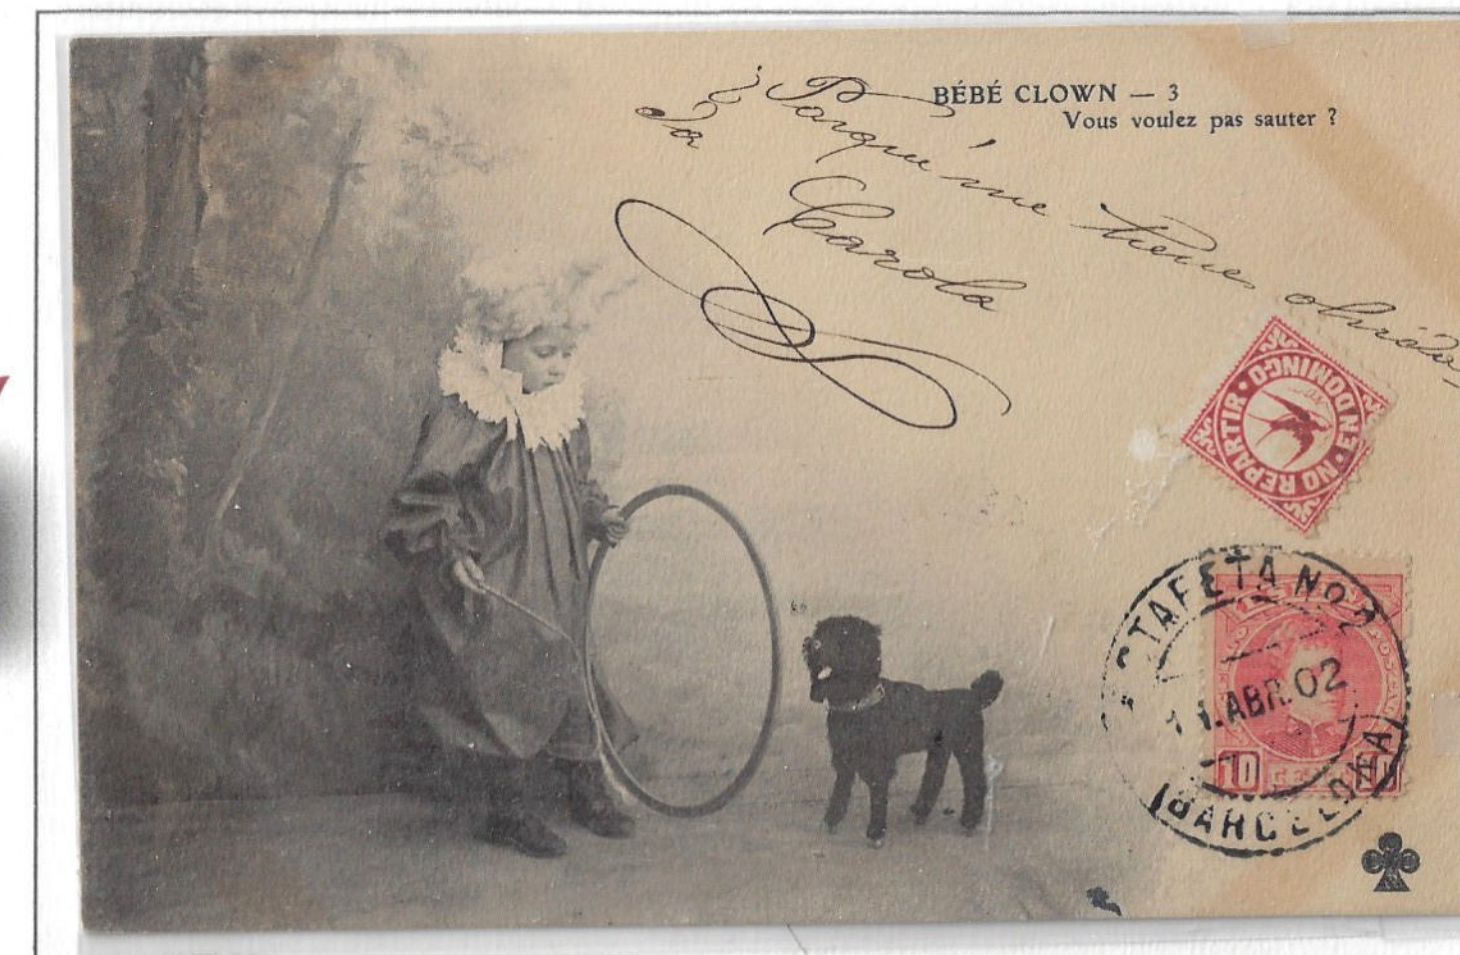 BÉBÉ CLOWN — 3
Vous voulez pas sauter ?
¿ Porqué me tienes olvidada
Carola
NO REPARTIR • EN DOMINGO •
ESTAFETA No 2
11.ABR.02
(BARCELONA)
10 CENT 10